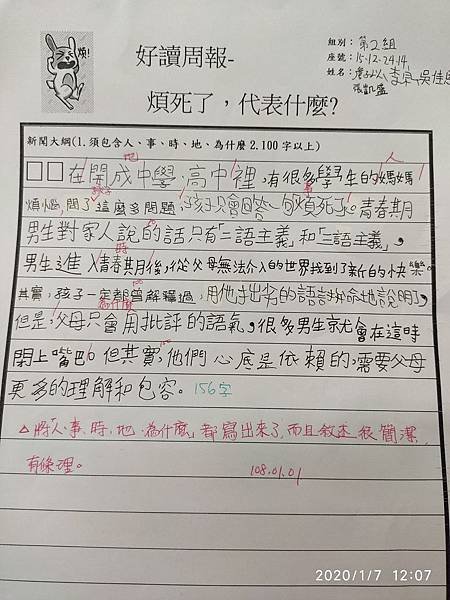 煩!
好讀周報-
煩死了，代表什麼?
組別：第2組
座號：15.12.24.14.
姓名：
新聞大綱(1.須包含人、事、時、地、為什麼 2.100字以上)
地 人
□□在開成中學、高中裡，有很多學生的媽媽
孩子 事
煩惱，問了這麼多問題，孩子只會回答一句煩死了。青春期
男生對家人說的話只有「二語主義」和「三語主義」，
時
男生進入青春期後，從父母無法介入的世界找到了新的快樂。
其實，孩子一定都曾解釋過，用他拙劣的語言拚命地說明了，
為什麼
但是，父母只會用批評的語氣，很多男生就會在這時
閉上嘴巴。但其實，他們心底是依賴的，需要父母
更多的理解和包容。156字
△將人、事、時、地、為什麼，都寫出來了，而且敘述很簡潔，
有條理。 108.01.01
2020/1/7 12:07